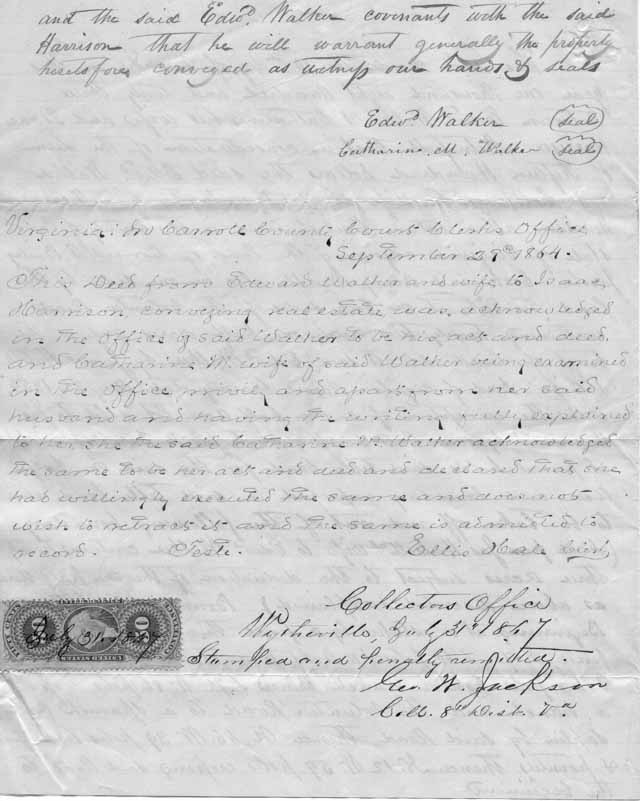 and the said Edwd. Walker covenants with the said
Harrison that he will warrant generally the property
heretofore conveyed as witness our hands & seals
Edwd Walker (seal)
Catharine. M. Walker (seal)
Virginia: In Carroll County Court Clerks Office
September 29th 1864.
This Deed from Edward Walker and wife to Isaac
Harrison conveying real estate was acknowledged
in the Office by said Walker to be his act and deed.
and Catharine M. wife of said Walker being examined
in the Office privily and apart from her said
husband and having the writing fully explained
to her, she the said Catharine M. Walker acknowledged
the same to be her act and deed and declared that she
had willingly executed the same and does not
wish to retract it and the same is admitted to
record. Teste. Ellis Hale Clerk
Collectors Office
Wytheville, July 31st 1867
July 31. 1867
Stamped and penalty remitted.
Geo. W. Jackson
Coll. 8th Dist. Va